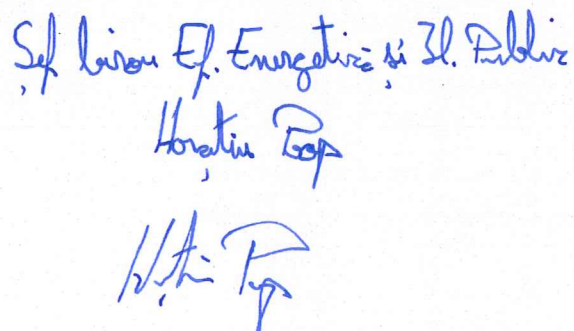 Șef birou Ef. Energetică și Il. Public
Horațiu Pop